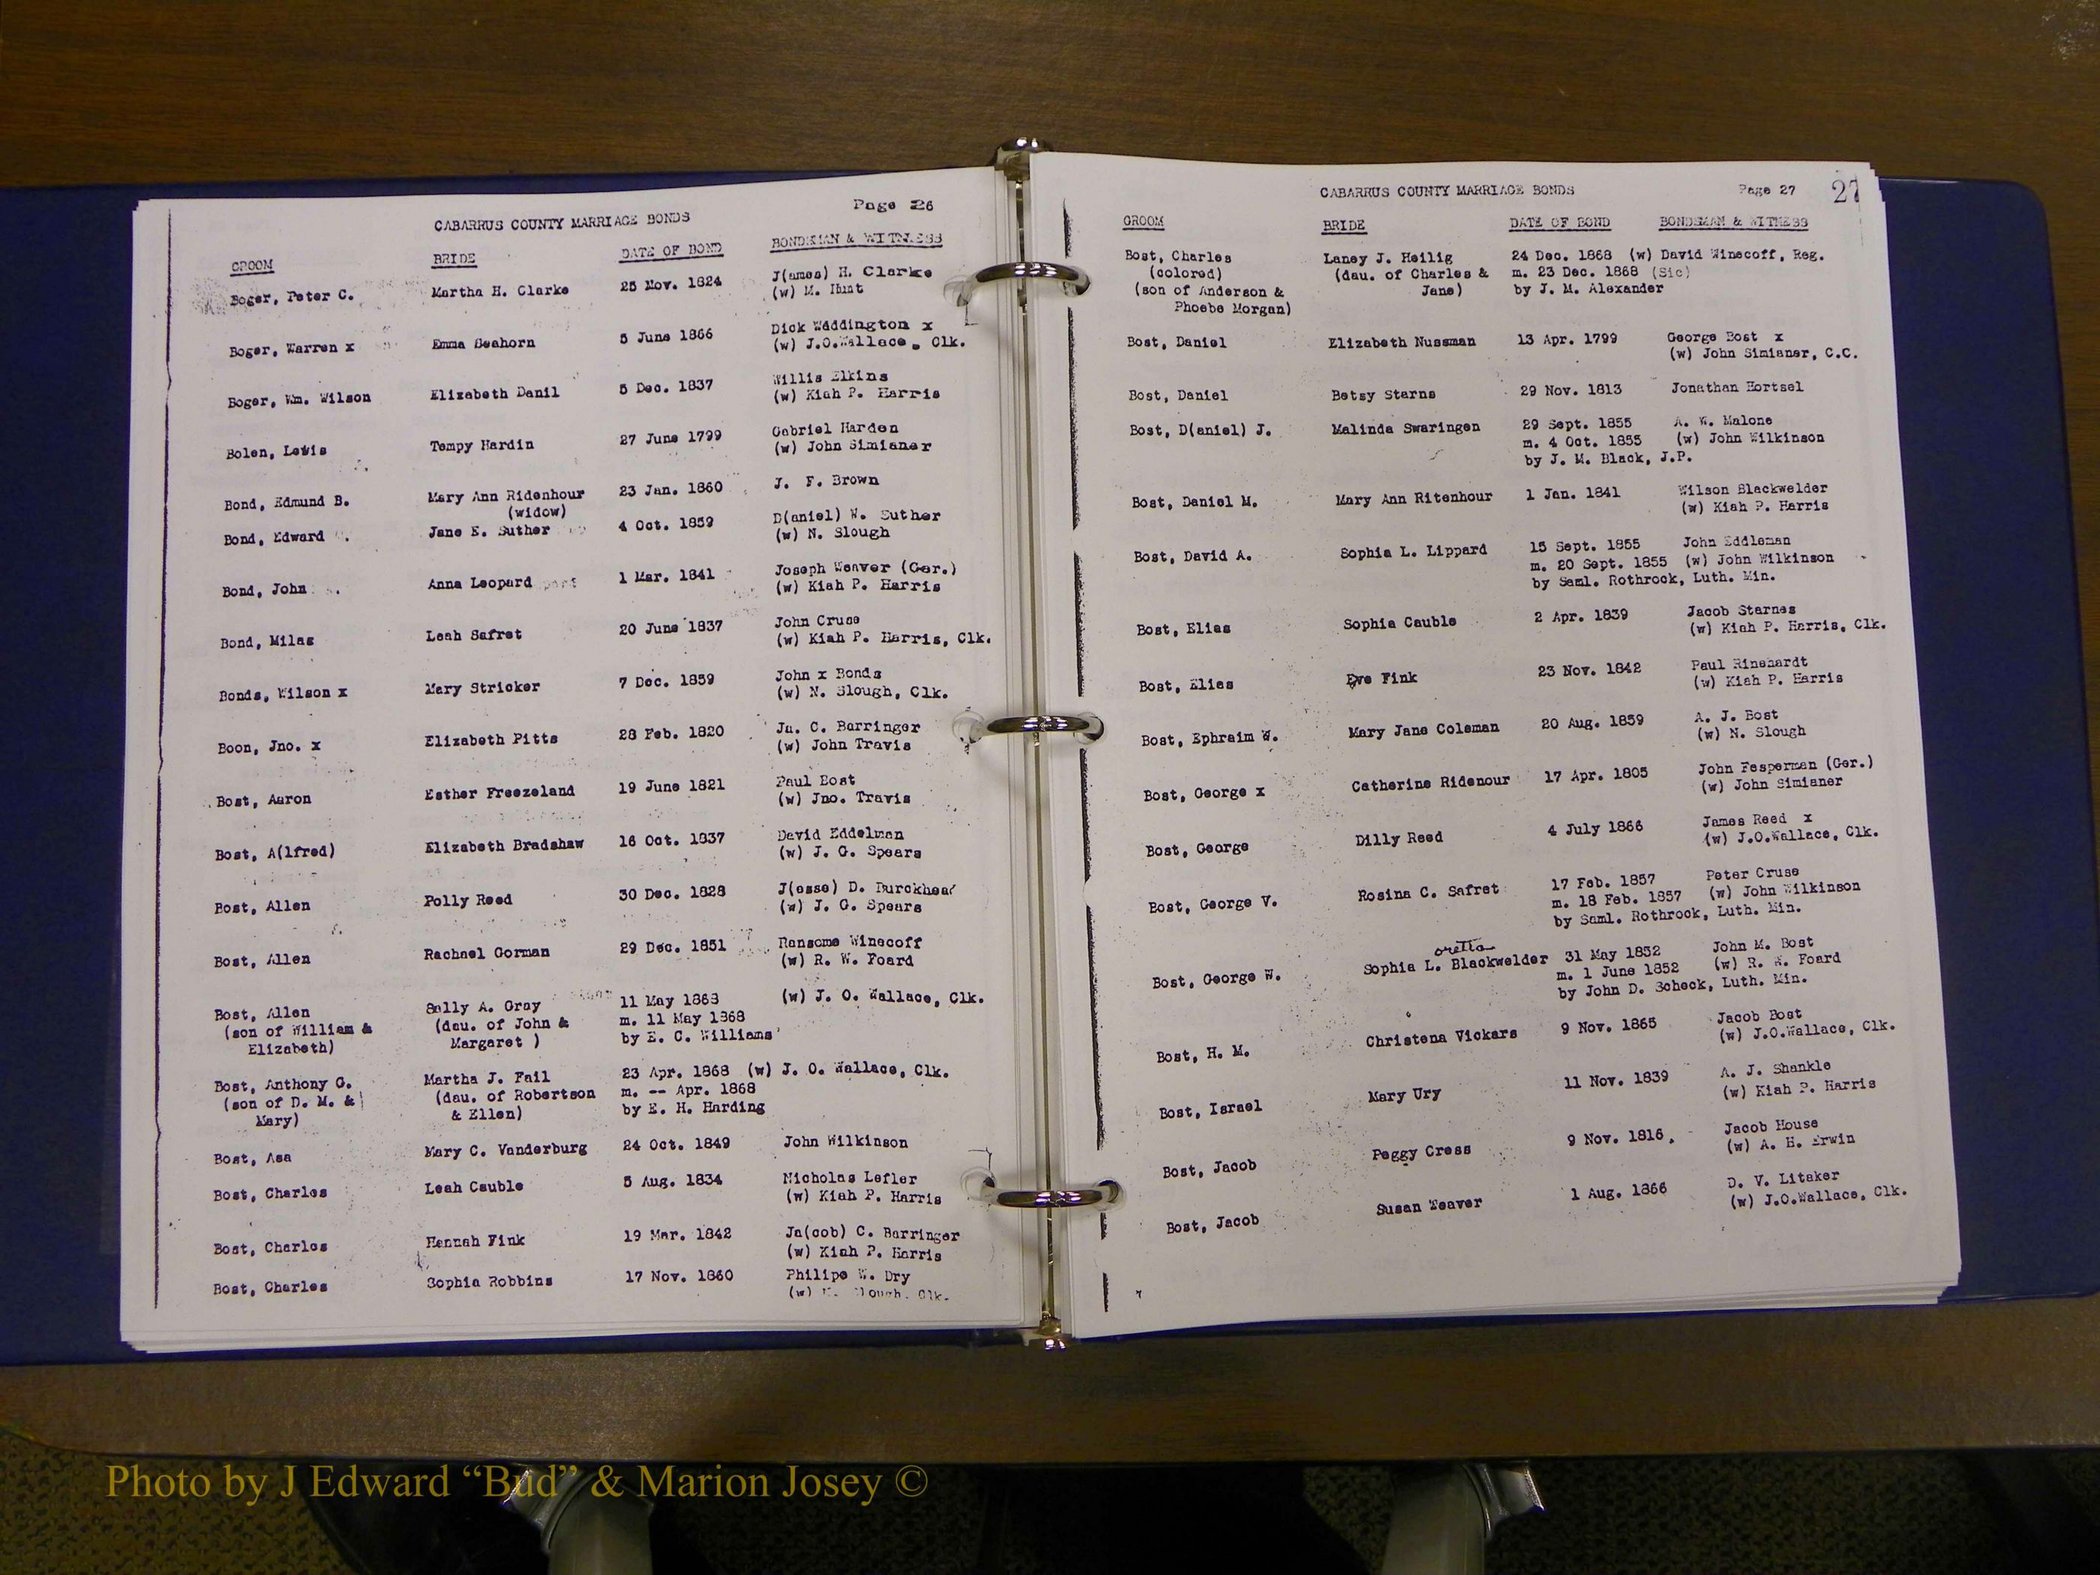 Page 26
CABARRUS COUNTY MARRIAGE BONDS
GROOM BRIDE DATE OF BOND BONDSMAN & WITNESS
Boger, Peter C. Martha H. Clarke 25 Nov. 1824 J(ames) H. Clarke
(w) M. Hunt
Boger, Warren x Emma Seahorn 5 June 1866 Dick Waddington x
(w) J.O.Wallace, Clk.
Boger, Wm. Wilson Elizabeth Danil 5 Dec. 1837 Willis Elkins
(w) Kiah P. Harris
Bolen, Lewis Tempy Hardin 27 June 1799 Gabriel Harden
(w) John Simianer
Bond, Edmund B. Mary Ann Ridenhour 23 Jan. 1860 J. F. Brown
(widow)
Bond, Edward Jane E. Suther 4 Oct. 1859 D(aniel) W. Suther
(w) N. Slough
Bond, John Anna Leopard 1 Mar. 1841 Joseph Weaver (Ger.)
(w) Kiah P. Harris
Bond, Milas Leah Safret 20 June 1837 John Cruse
(w) Kiah P. Harris, Clk.
Bonds, Wilson x Mary Stricker 7 Dec. 1859 John x Bonds
(w) N. Slough, Clk.
Boon, Jno. x Elizabeth Pitts 28 Feb. 1820 Ja. C. Barringer
(w) John Travis
Bost, Aaron Esther Freezeland 19 June 1821 Paul Bost
(w) Jno. Travis
Bost, A(lfred) Elizabeth Bradshaw 16 Oct. 1837 David Eddelman
(w) J. G. Spears
Bost, Allen Polly Reed 30 Dec. 1828 J(esse) D. Burckhead
(w) J. G. Spears
Bost, Allen Rachael Gorman 29 Dec. 1851 Ransome Winecoff
(w) R. W. Foard
Bost, Allen Sally A. Gray 11 May 1868 (w) J. O. Wallace, Clk.
(son of William & (dau. of John & m. 11 May 1868
Elizabeth) Margaret ) by E. C. Williams
Bost, Anthony G. Martha J. Fail 23 Apr. 1868 (w) J. O. Wallace, Clk.
(son of D. M. & (dau. of Robertson m. -- Apr. 1868
Mary) & Ellen) by E. H. Harding
Bost, Asa Mary C. Vanderburg 24 Oct. 1849 John Wilkinson
Bost, Charles Leah Cauble 5 Aug. 1834 Nicholas Lefler
(w) Kiah P. Harris
Bost, Charles Hannah Fink 19 Mar. 1842 Ja(cob) C. Barringer
(w) Kiah P. Harris
Bost, Charles Sophia Robbins 17 Nov. 1860 Philipe W. Dry
(w) N. Slough, Clk.
CABARRUS COUNTY MARRIAGE BONDS Page 27 27
GROOM BRIDE DATE OF BOND BONDSMAN & WITNESS
Bost, Charles Laney J. Heilig 24 Dec. 1868 (w) David Winecoff, Reg.
(colored) (dau. of Charles & m. 23 Dec. 1868 (Sic)
(son of Anderson & Jane) by J. M. Alexander
Phoebe Morgan)
Bost, Daniel Elizabeth Nussman 13 Apr. 1799 George Bost x
(w) John Simianer, C.C.
Bost, Daniel Betsy Starns 29 Nov. 1813 Jonathan Hortsel
Bost, D(aniel) J. Malinda Swaringen 29 Sept. 1855 A. W. Malone
m. 4 Oct. 1855 (w) John Wilkinson
by J. M. Black, J.P.
Bost, Daniel M. Mary Ann Ritenhour 1 Jan. 1841 Wilson Blackwelder
(w) Kiah P. Harris
Bost, David A. Sophia L. Lippard 15 Sept. 1855 John Eddleman
m. 20 Sept. 1855 (w) John Wilkinson
by Saml. Rothrock, Luth. Min.
Bost, Elias Sophia Cauble 2 Apr. 1839 Jacob Starnes
(w) Kiah P. Harris, Clk.
Bost, Elias Eve Fink 23 Nov. 1842 Paul Rinehardt
(w) Kiah P. Harris
Bost, Ephraim W. Mary Jane Coleman 20 Aug. 1859 A. J. Bost
(w) N. Slough
Bost, George x Catherine Ridenour 17 Apr. 1805 John Fesperman (Ger.)
(w) John Simianer
Bost, George Dilly Reed 4 July 1866 James Reed x
(w) J.O.Wallace, Clk.
Bost, George V. Rosina C. Safret 17 Feb. 1857 Peter Cruse
m. 18 Feb. 1857 (w) John Wilkinson
by Saml. Rothrock, Luth. Min.
oretta
Bost, George W. Sophia L. Blackwelder 31 May 1852 John M. Bost
m. 1 June 1852 (w) R. W. Foard
by John D. Scheck, Luth. Min.
Bost, H. M. Christena Vickars 9 Nov. 1865 Jacob Bost
(w) J.O.Wallace, Clk.
Bost, Israel Mary Ury 11 Nov. 1839 A. J. Shankle
(w) Kiah P. Harris
Bost, Jacob Peggy Cress 9 Nov. 1816 Jacob House
(w) A. H. Erwin
Bost, Jacob Susan Weaver 1 Aug. 1866 D. V. Litaker
(w) J.O.Wallace, Clk.
Photo by J Edward “Bud” & Marion Josey ©